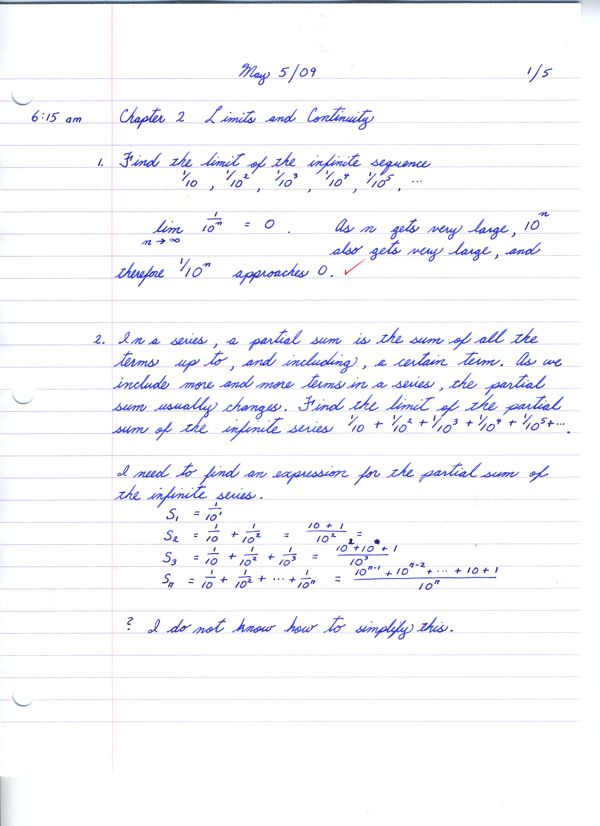 May 5/09 1/5
6:15 am Chapter 2 Limits and Continuity
1. Find the limit of the infinite sequence
1/10, 1/10², 1/10³, 1/10⁴, 1/10⁵, ...
lim n→∞ 1/10ⁿ = 0. As n gets very large, 10ⁿ
also gets very large, and
therefore 1/10ⁿ approaches 0. ✓
2. In a series, a partial sum is the sum of all the
terms up to, and including, a certain term. As we
include more and more terms in a series, the partial
sum usually changes. Find the limit of the partial
sum of the infinite series 1/10 + 1/10² + 1/10³ + 1/10⁴ + 1/10⁵ + ....
I need to find an expression for the partial sum of
the infinite series.
S₁ = 1/10¹
S₂ = 1/10 + 1/10² = (10 + 1)/10² =
S₃ = 1/10 + 1/10² + 1/10³ = (10² + 10 + 1)/10³
Sₙ = 1/10 + 1/10² + ... + 1/10ⁿ = (10ⁿ⁻¹ + 10ⁿ⁻² + ... + 10 + 1)/10ⁿ
? I do not know how to simplify this.